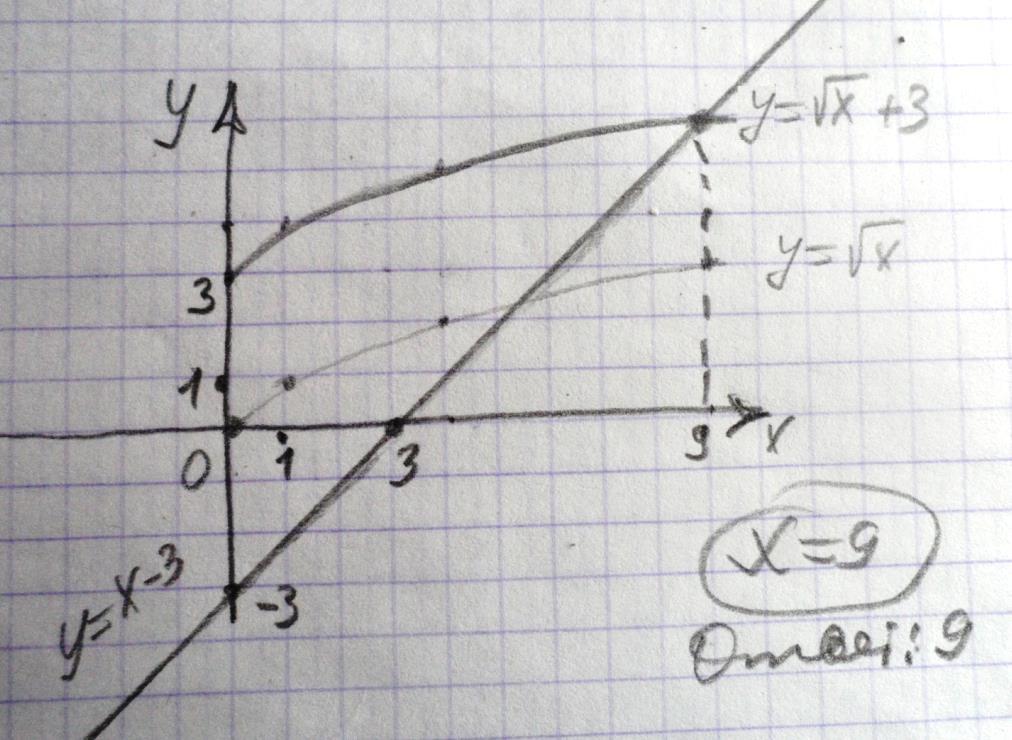 y
y=√x +3
y=√x
3
1
0
1
3
9
x
-3
y=x-3
x=9
Ответ: 9